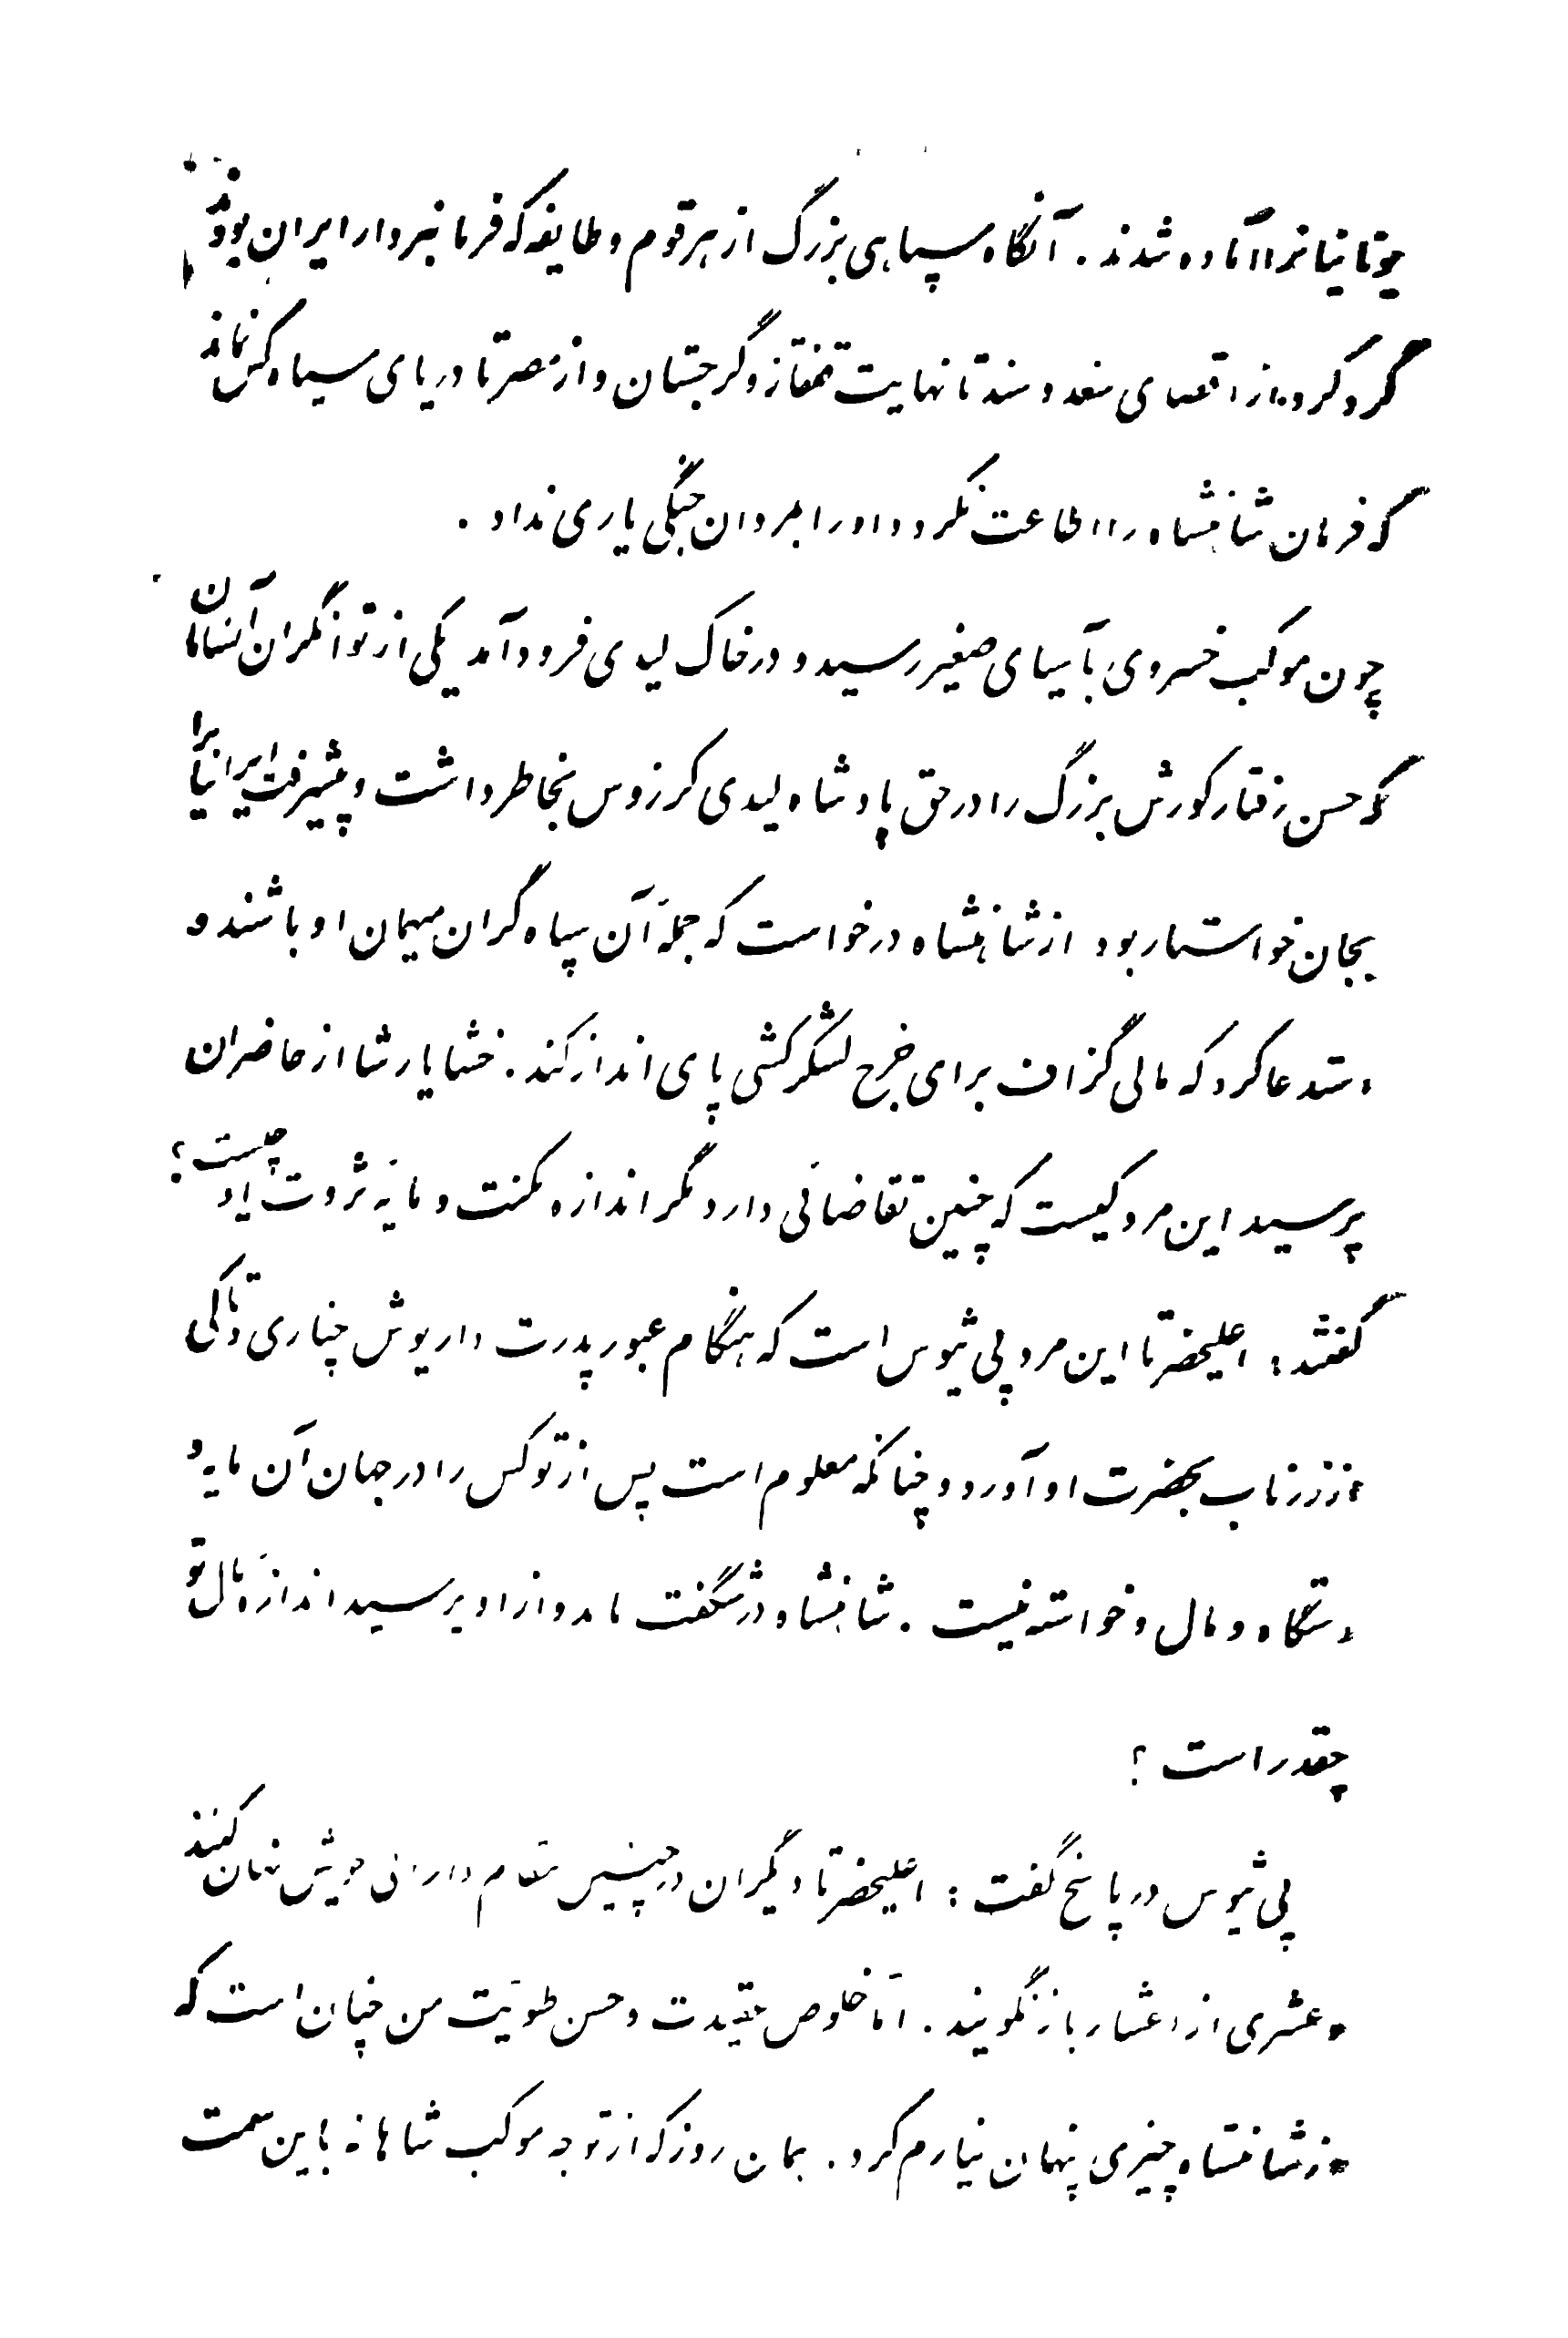 یونانیانرا آماده شدند. آنگاه سپاهی بزرگ از هر قوم و طایفه که فرمانبردار ایران بودند
گرد کرد. از اقصای سغد و سند تا نهایت قفقاز و گرجستان و از مصر تا دریای سیاه کس نماند
که فرمان شاهنشاه را اطاعت نکرد و او را بمردان جنگی یاری نداد.
چون موکب خسروی بآسیای صغیر رسید و در خاک لیدی فرود آمد یکی از توانگران آنسامان
که حسن رفتار کورش بزرگ را در حق پادشاه لیدی کرزوس بخاطر داشت و پیشرفت ایرانیانرا
بجان خواستار بود از شاهنشاه درخواست که جملهٔ آن سپاه گران میهمان او باشند و
استدعا کرد که مالی گزاف برای خرج لشگرکشی پای انداز کند. خشایارشا از حاضران
پرسید این مرد کیست که چنین تقاضائی دارد مگر اندازه مکنت و مایهٔ ثروت او چیست؟
گفتند: اعلیحضرتا این مرد پی‌ثیوس است که هنگام عبور پدرت داریوش چناری و تاکی
از زر ناب بحضرت او آورد و چنانکه معلوم است پس از تو کس را در جهان آن مایه و
دستگاه و مال و خواسته نیست. شاهنشاه در شگفت ماند و از او پرسید اندازهٔ مال تو
چقدر است؟
پی‌ثیوس در پاسخ گفت: اعلیحضرتا دیگران در چنین مقام دارائی خویش نهان کنند
و عشری از اعشار باز نگویند. اما خلوص عقیدت و حسن طویت من چنان است که
از شاهنشاه چیزی پنهان نیارم کرد. همان روز که از توجه موکب شاهانه باین سمت